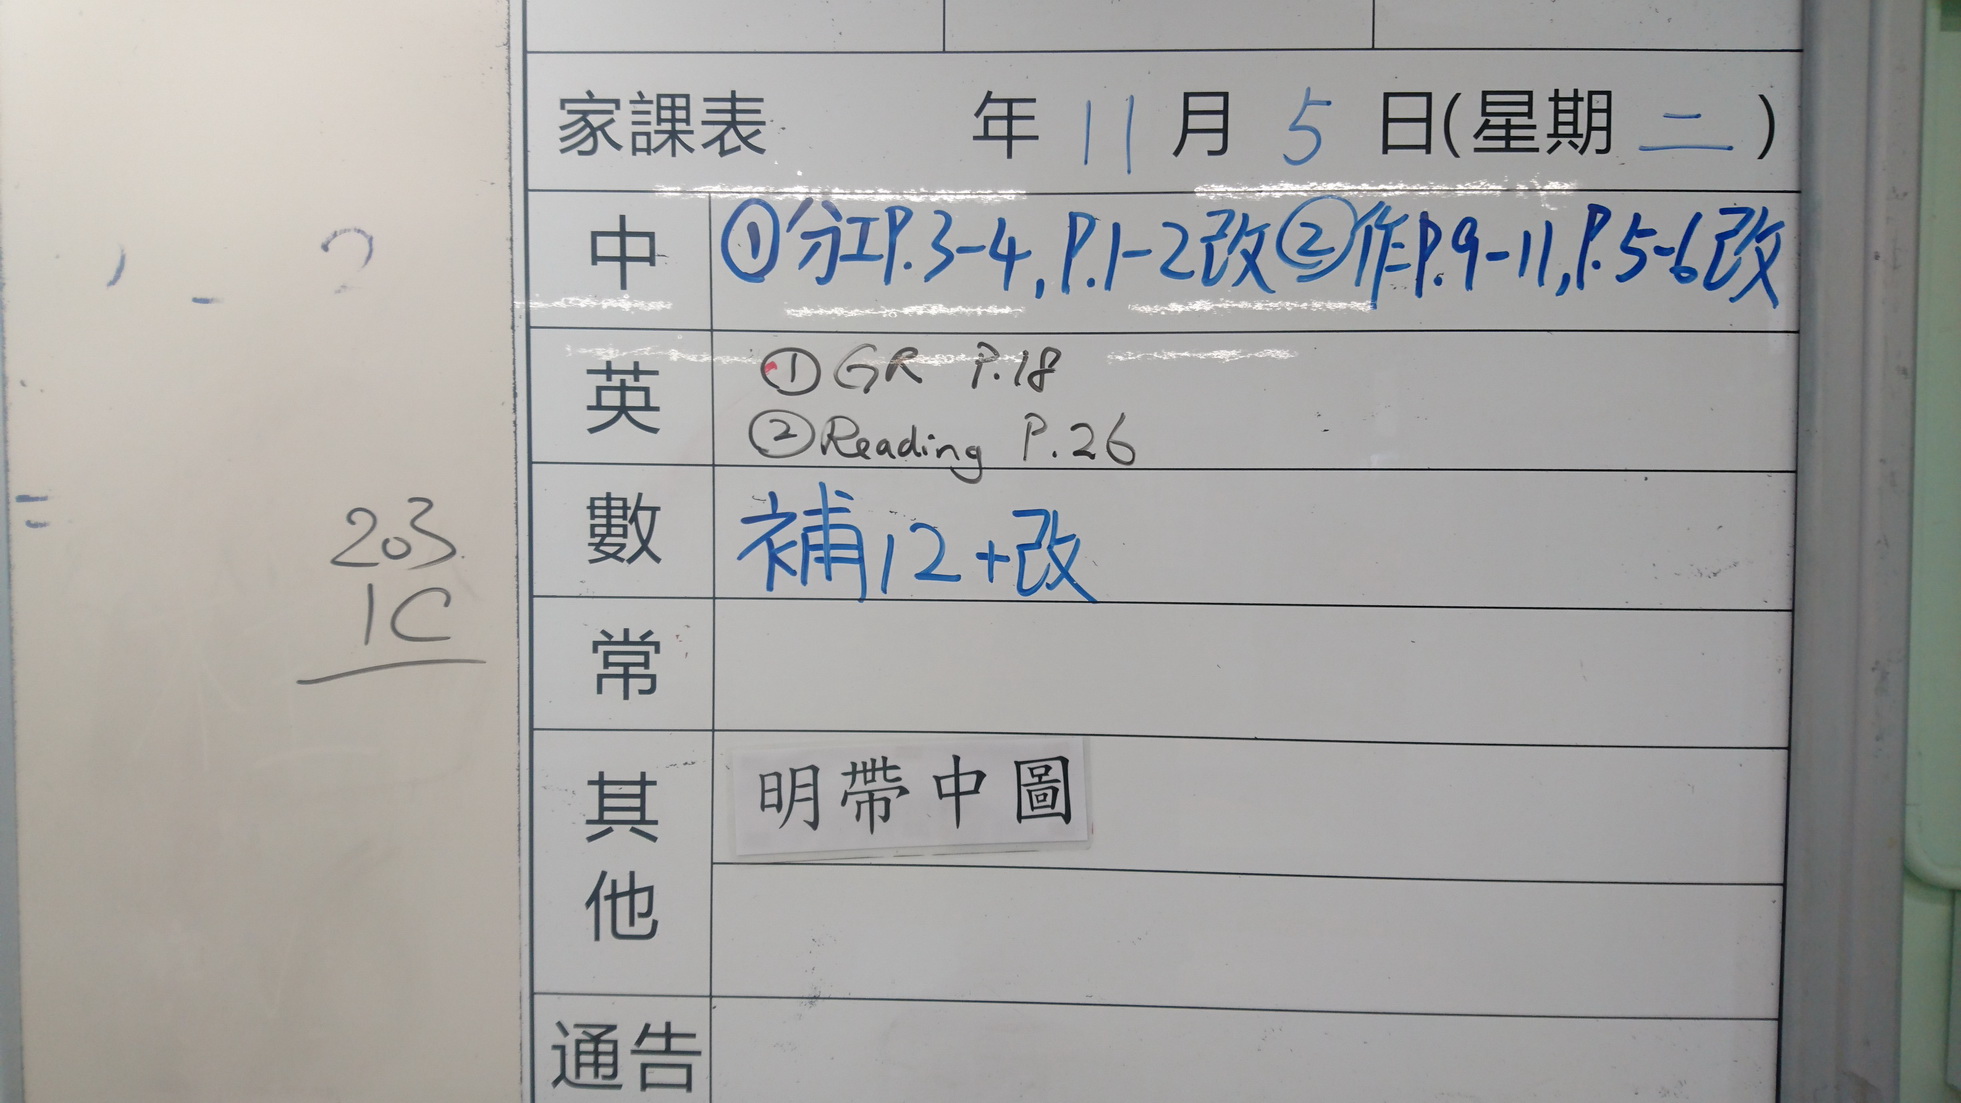 家課表 年 11 月 5 日(星期 二 )
中 ①分工P.3-4,P.1-2改②作P.9-11,P.5-6改
英 ①GR P.18
②Reading P.26
數 補12+改
常
其他 明帶中圖
通告
203
1C